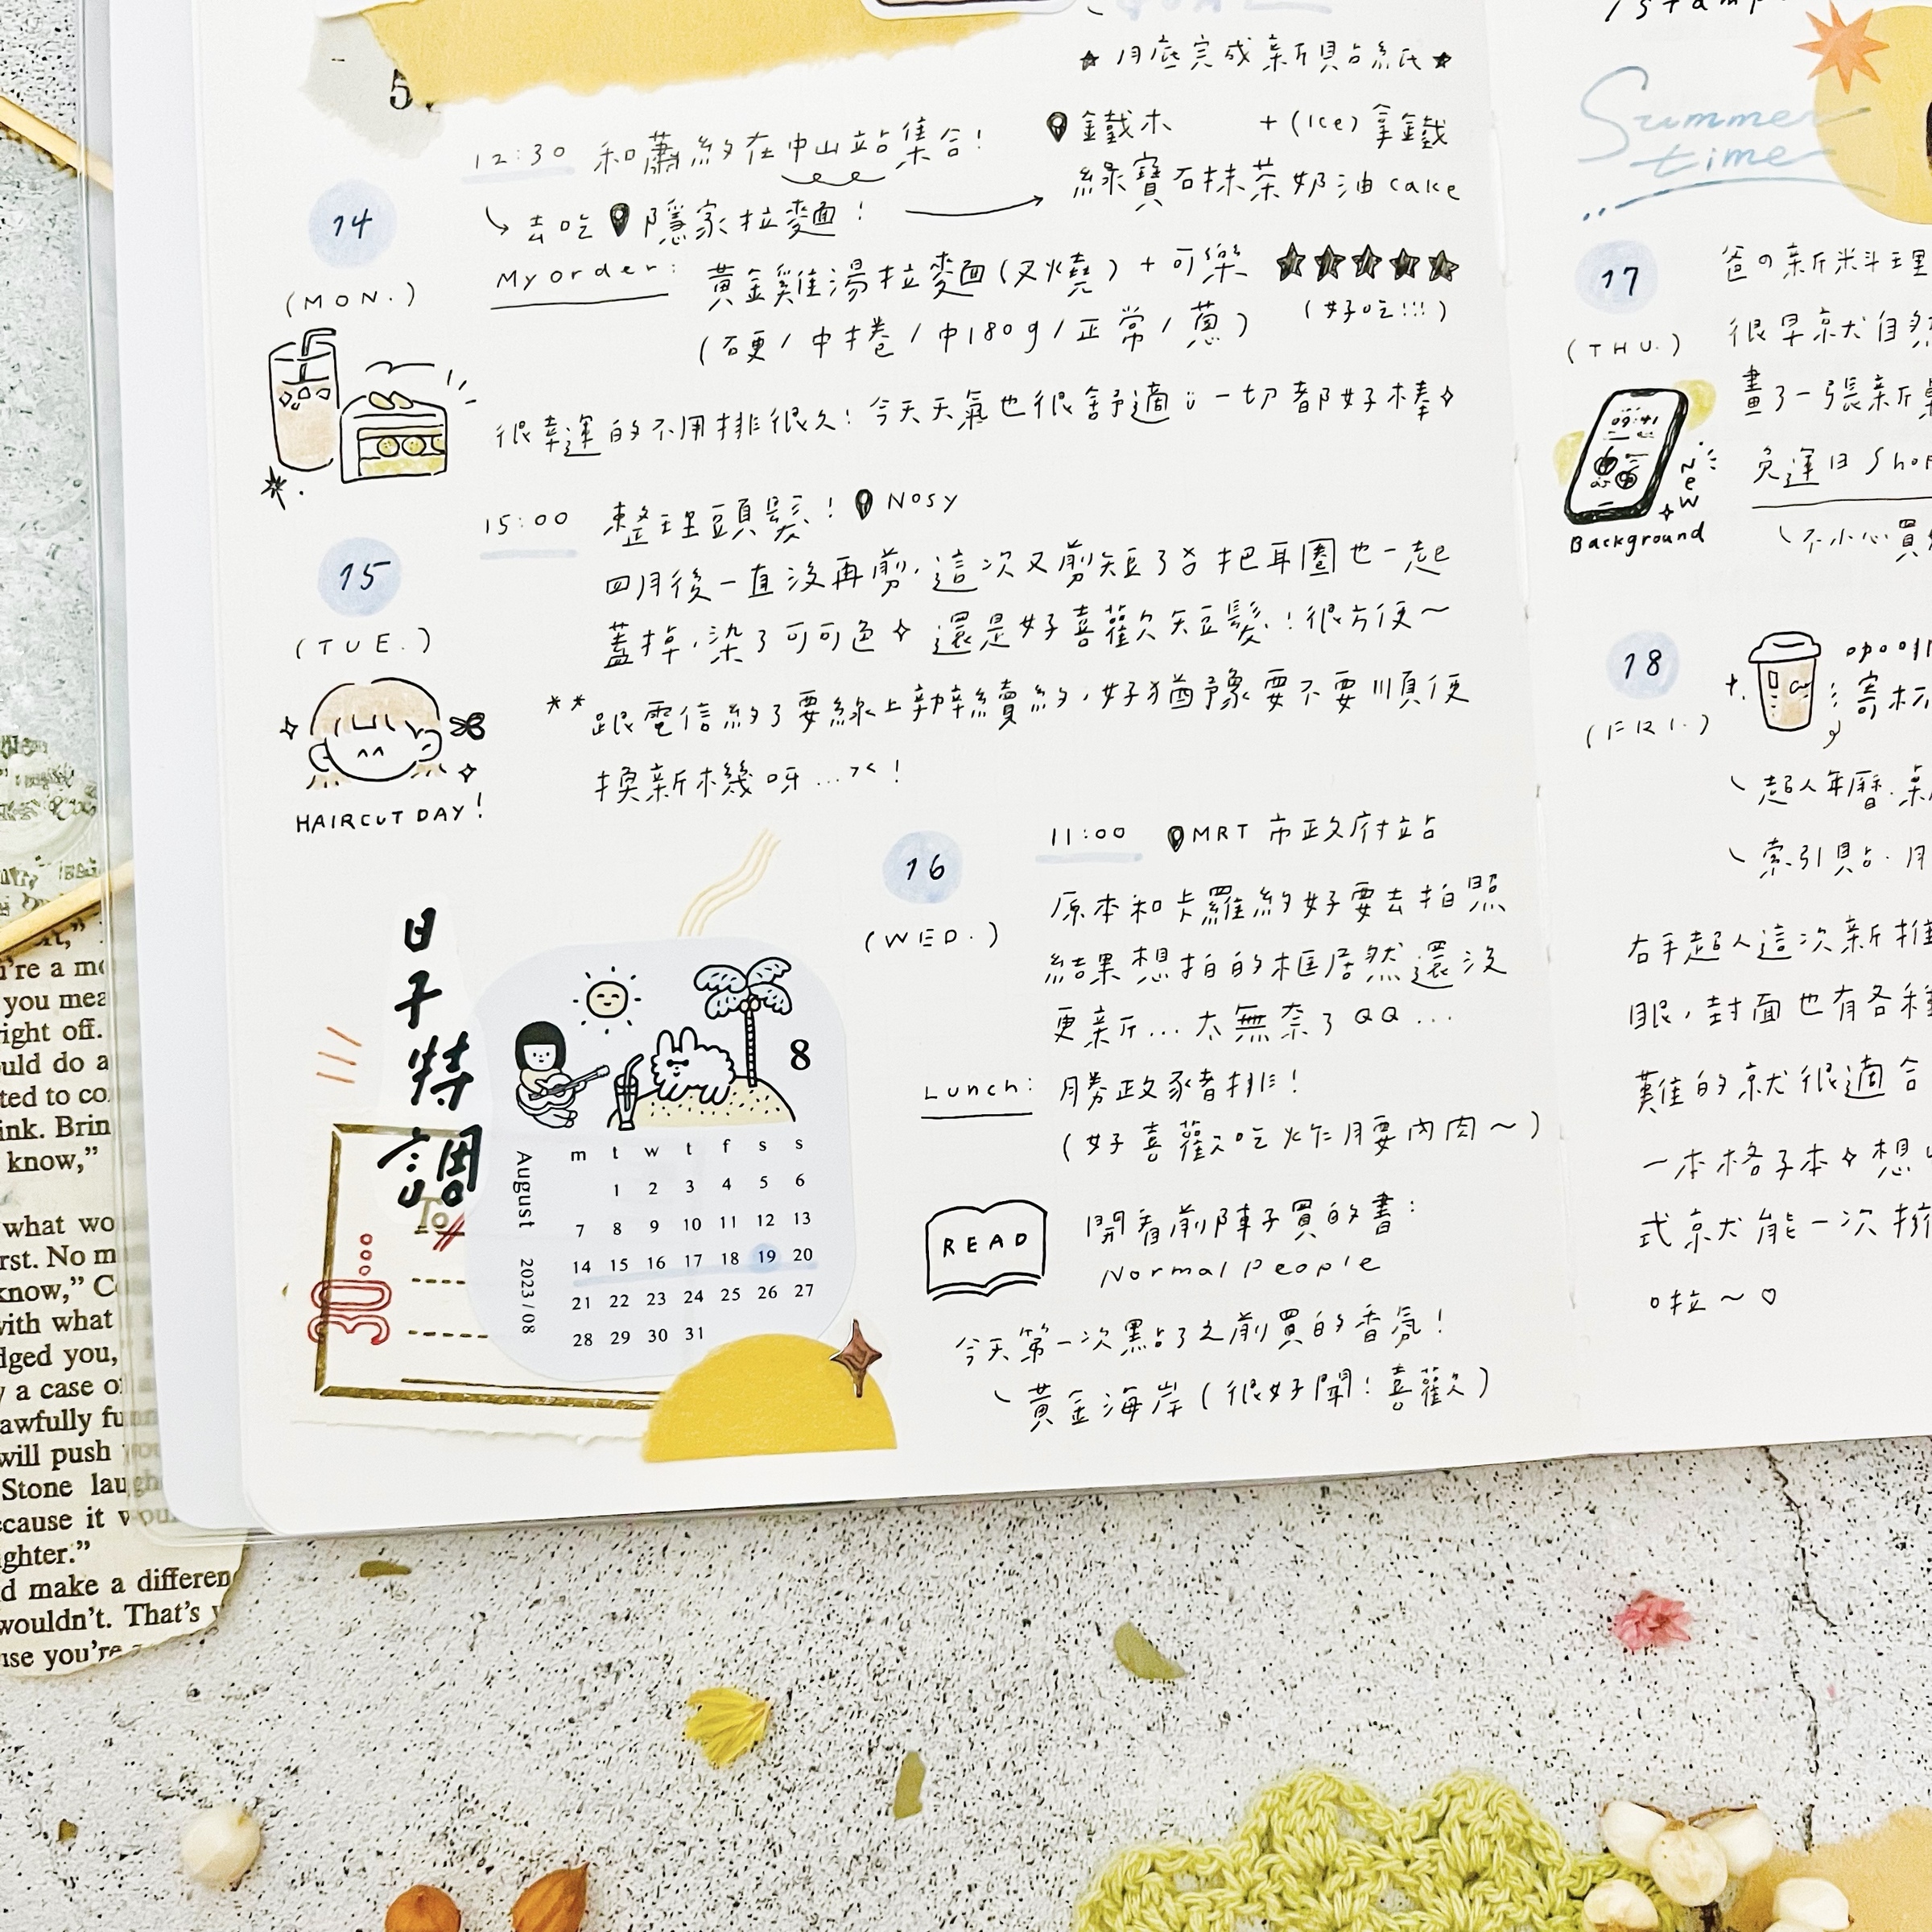 ★ 月底完成新貼紙 ★
12:30 和蕭約在中山站集合!
鐵木 +(Ice) 拿鐵
綠寶石抹茶奶油cake
14
(MON.)
去吃 隱家拉麵!
My order: 黃金雞湯拉麵(叉燒) + 可樂 ★★★★★
(硬/中捲/中180g/正常/蔥) (好吃!!!)
很幸運的不用排很久! 今天天氣也很舒適ü 一切都好棒✧
15
(TUE.)
15:00 整理頭髮! Nosy
四月後一直沒再剪,這次又剪短了 把耳圈也一起
蓋掉,染了可可色✧ 還是好喜歡短髮!很方便~
**跟電信約了要線上辦續約,好猶豫要不要順便
換新機呀...><!
HAIRCUT DAY!
16
(WED.)
11:00 MRT 市政府站
原本和卡羅約好要去拍照
結果想拍的框居然還沒
更新...太無奈了QQ...
Lunch: 勝政豬排!
(好喜歡吃炸腰內肉~)
READ
開看前陣子買的書:
Normal People
今天第一次點了之前買的香氛!
黃金海岸(很好聞!喜歡)
日子特調
To
8
August 2023/08
m t w t f s s
1 2 3 4 5 6
7 8 9 10 11 12 13
14 15 16 17 18 19 20
21 22 23 24 25 26 27
28 29 30 31
Summer
time
17
(THU.)
爸の新料理
很早就自然
畫了一張新
免運日 Shop
不小心買
09:41
New
Background
18
(FRI.)
寄杯
超人年曆.
索引貼.月
右手超人這次新推
眼,封面也有各種
難的就很適合
一本格子本✧想
式就能一次擁
啦~♡
're a mo
you mea
right off.
ould do a
ted to co
ink. Brin
know,"
what wo
rst. No m
know," C
with what
dged you,
y a case o
awfully fun
will push you
Stone laugh
ecause it wou
ghter."
d make a differen
wouldn't. That's
use you're